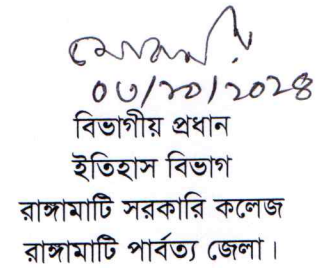 ০৩/১০/২০২৪
বিভাগীয় প্রধান
ইতিহাস বিভাগ
রাঙ্গামাটি সরকারি কলেজ
রাঙ্গামাটি পার্বত্য জেলা।